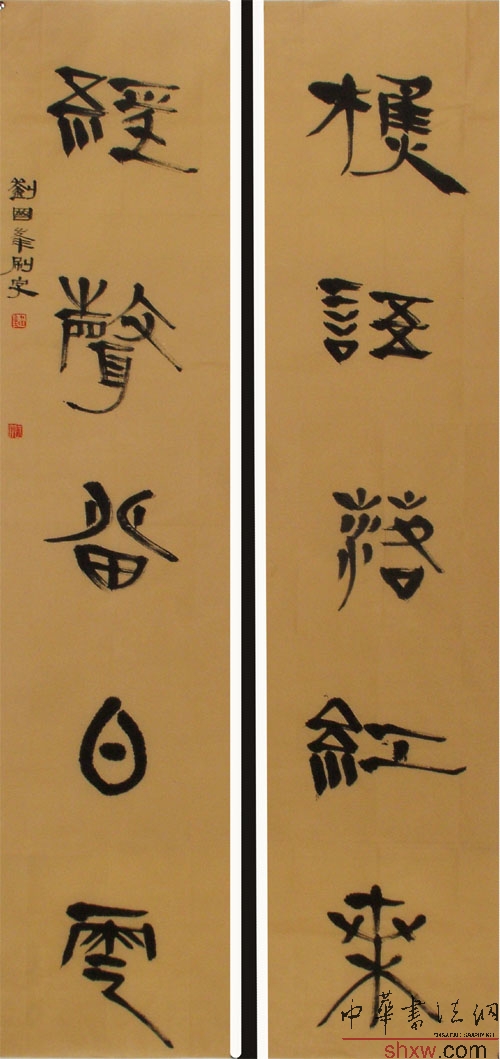 樵語落紅葉
經聲留白雲
劉國峯刷字
中華書法網
shxw.com